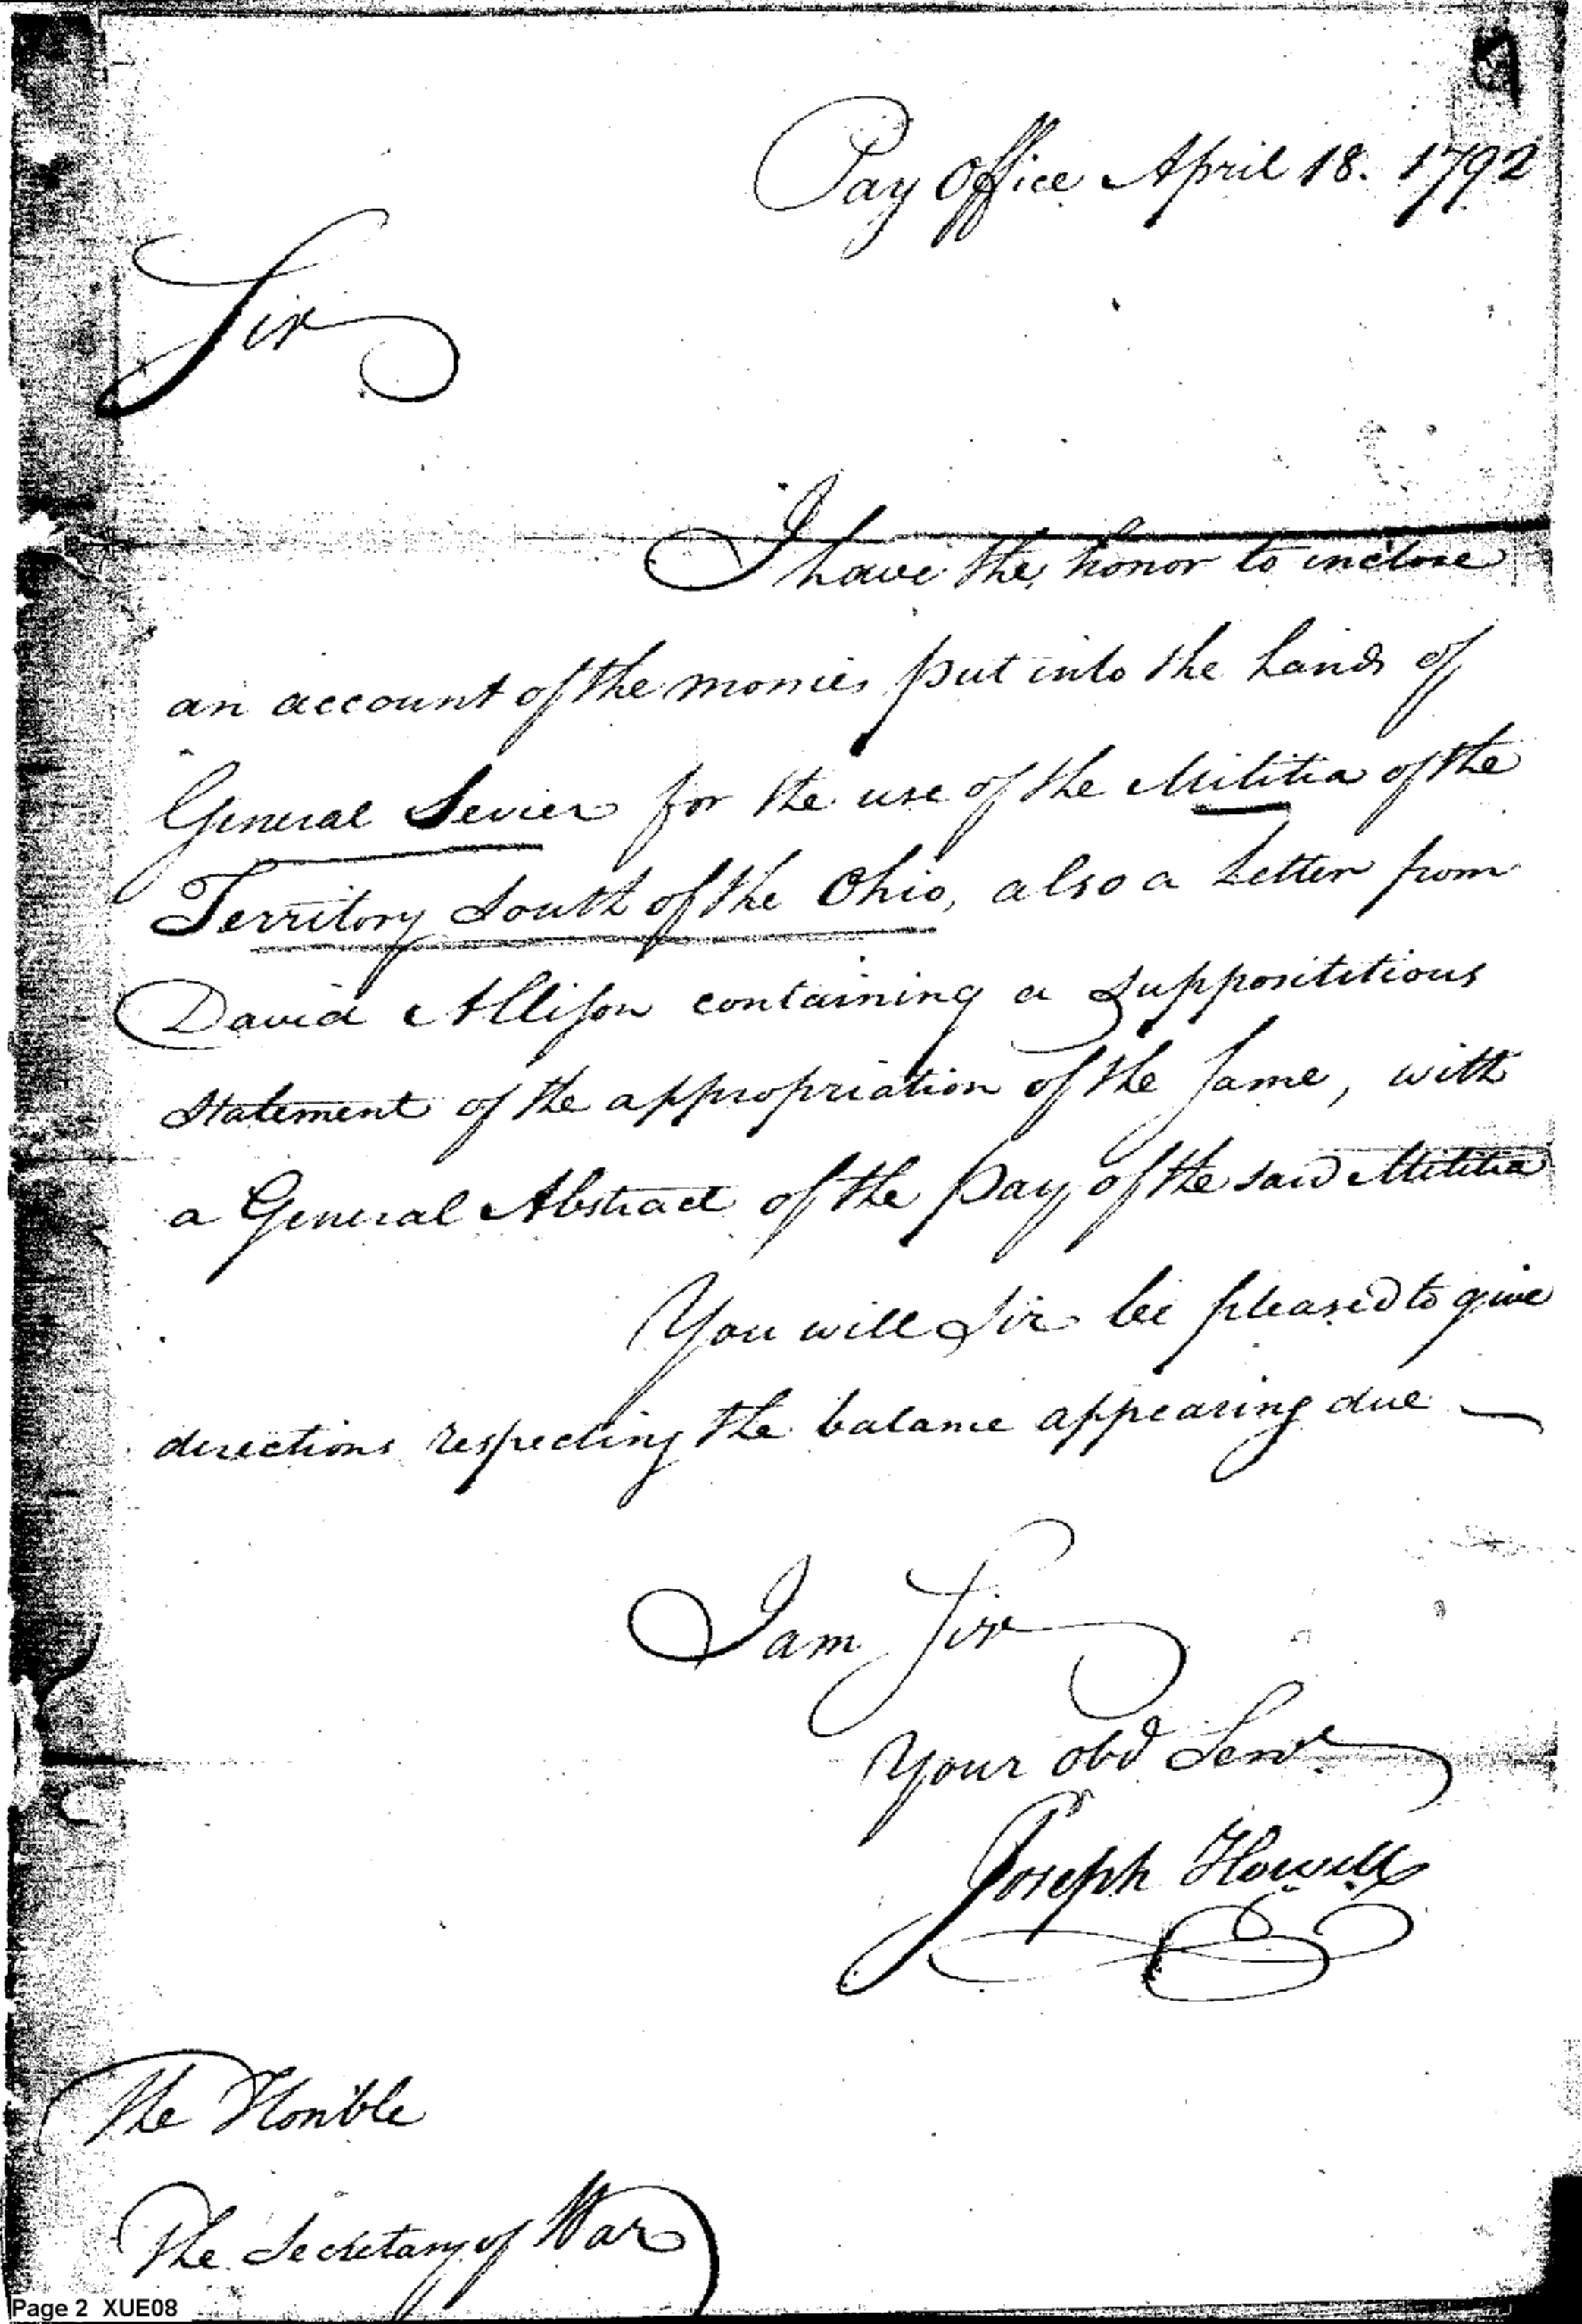 Pay Office April 18. 1792
Sir
I have the honor to inclose
an account of the monies put into the hands of
General Sevier for the use of the Militia of the
Territory South of the Ohio, also a Letter from
David Allison containing a Supposititious
Statement of the appropriation of the Same, with
a General Abstract of the Pay of the said Militia
You will Sir be pleased to give
directions respecting the balance appearing due
I am Sir
Your obd Servt
Joseph Howell
The Honble
The Secretary of War
Page 2 XUE08